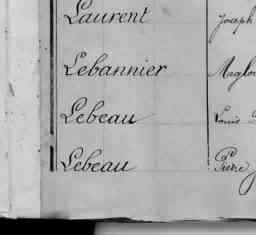 Laurent Joseph
Lebannier Maglo
Lebeau Louis
Lebeau Pierre